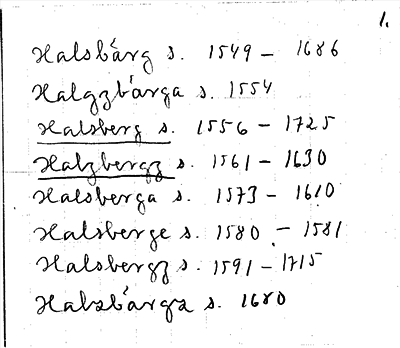 1.
Halsbärg s. 1549 – 1686
Halgzbärga s. 1554
Halsberg s. 1556 – 1725
Halzbergz s. 1561 – 1630
Halsberga s. 1573 – 1610
Halsberge s. 1580 – 1581
Halsbergz s. 1591 – 1715
Halsbärga s. 1680